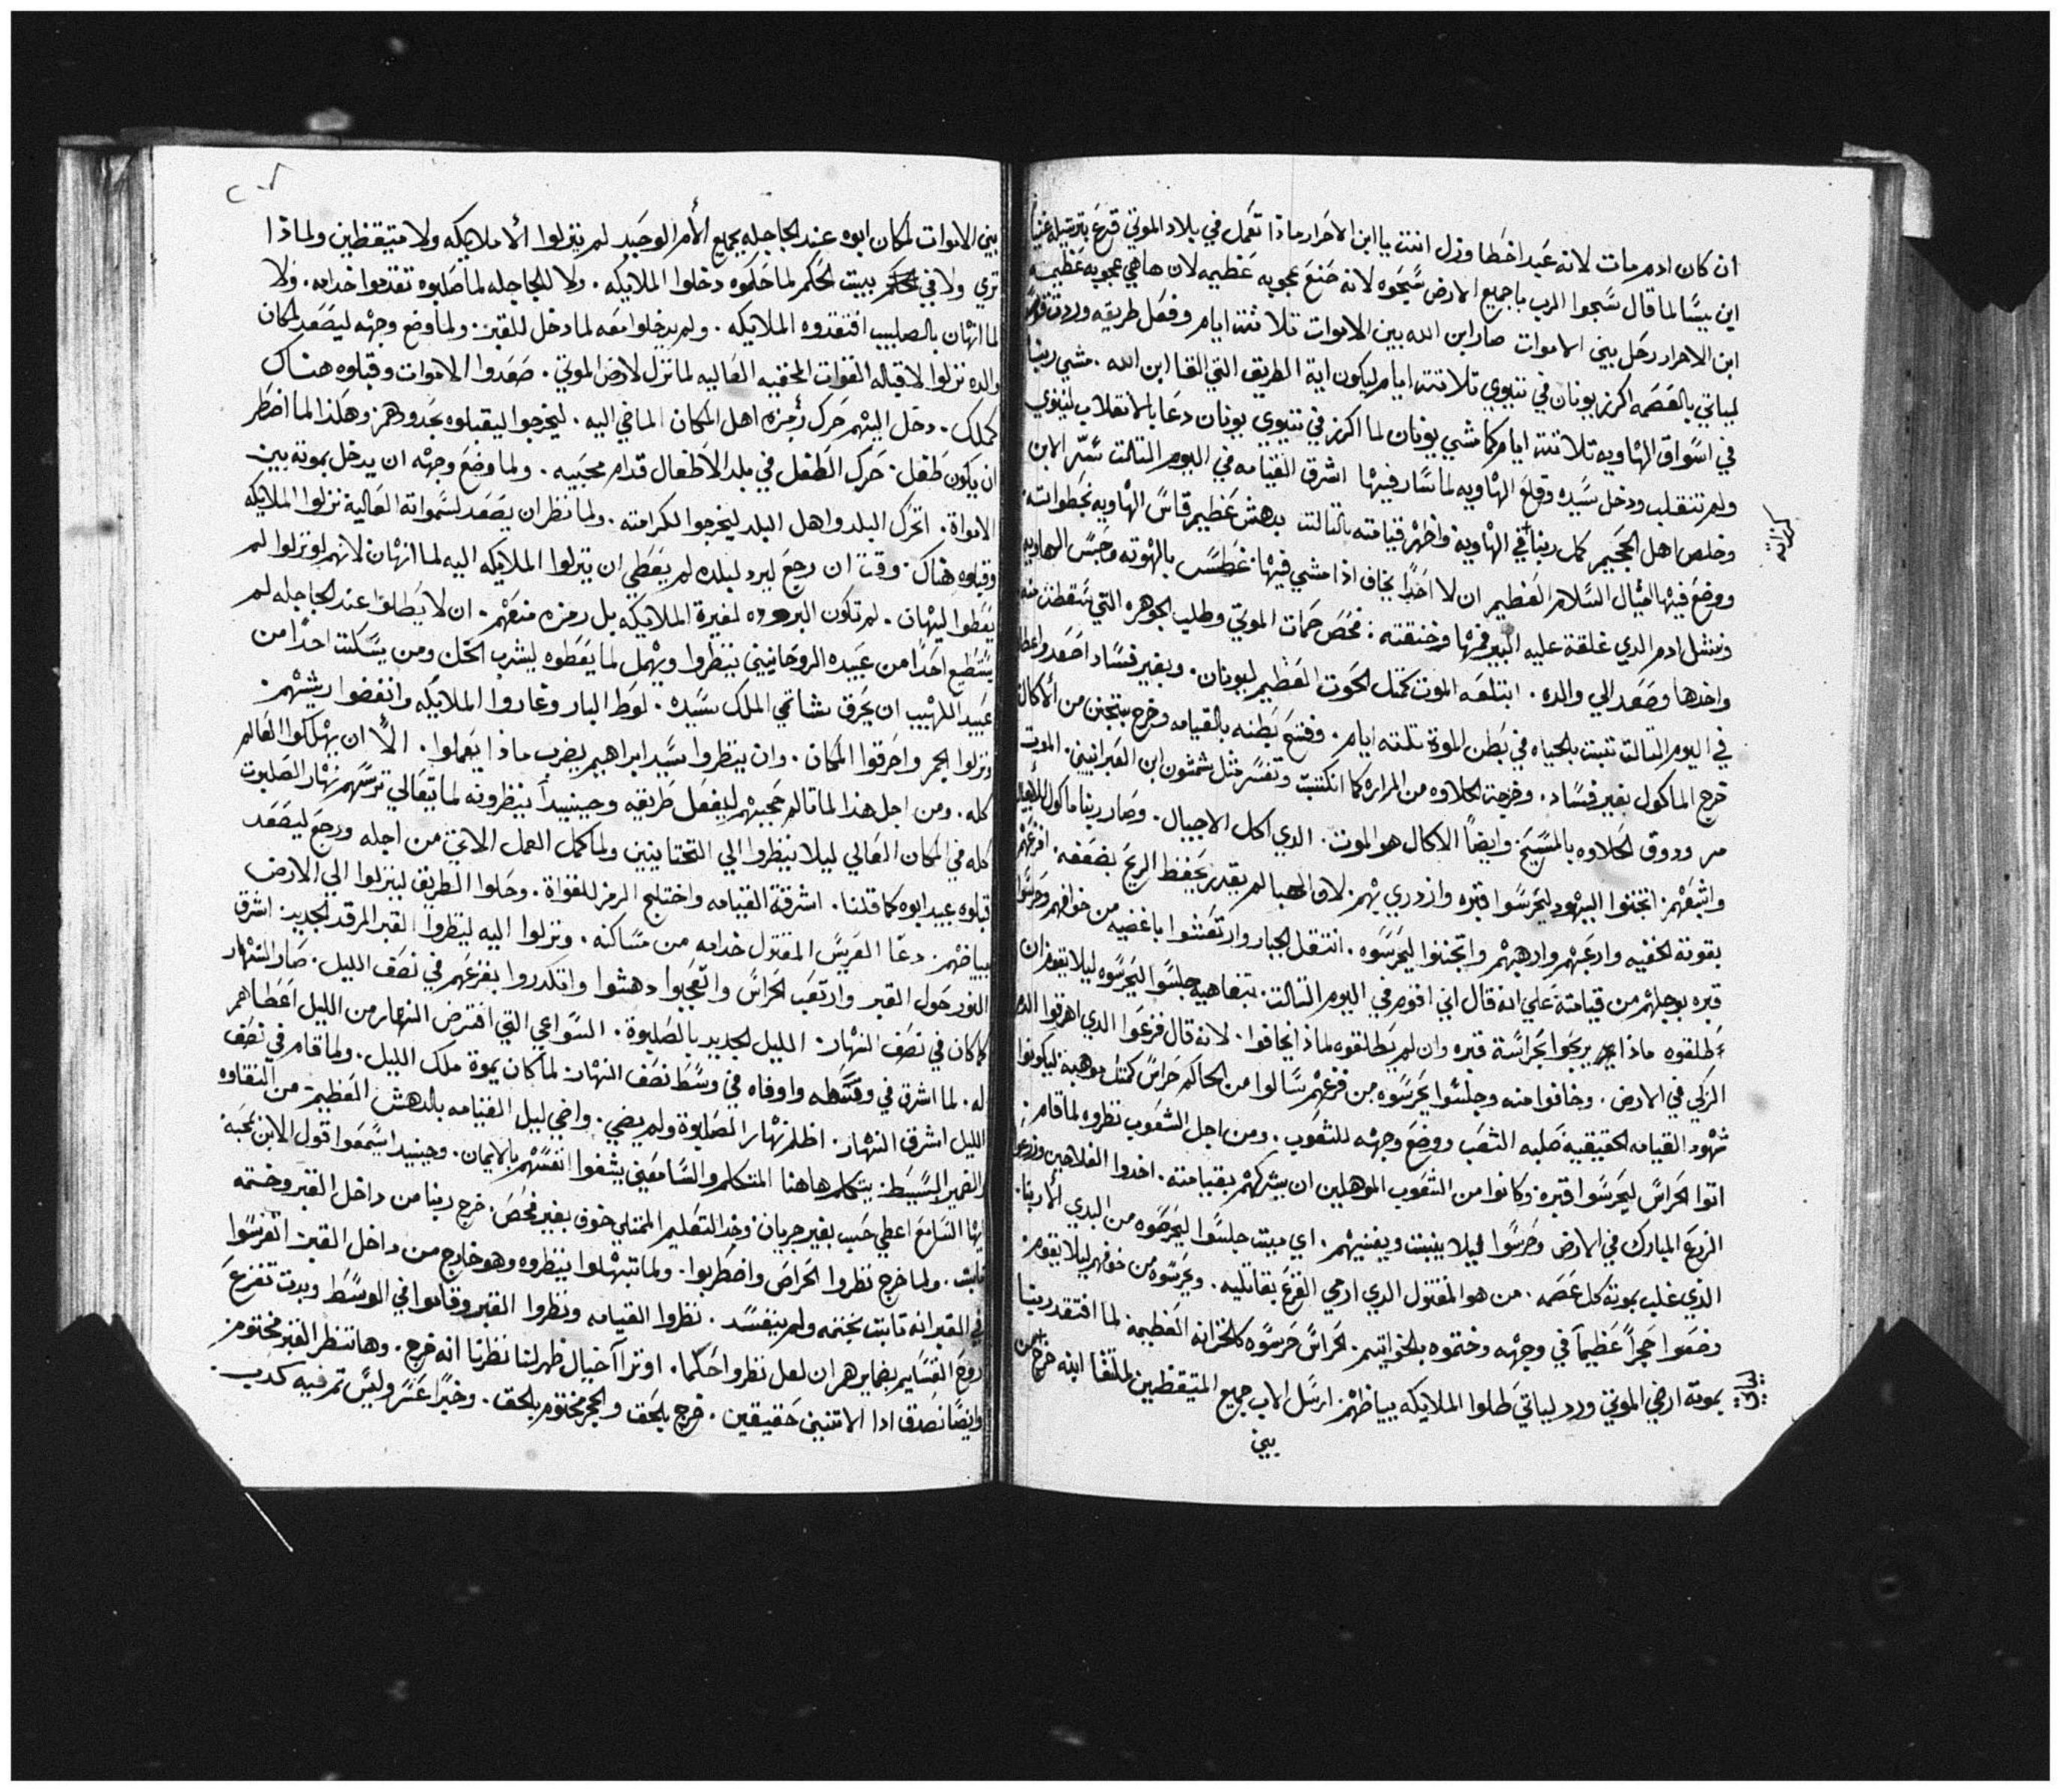 ان كان ادم مات لانه عبد اخطا وزل انت يا ابن الاحرار ماذا تعمل في بلاد الموتي قرع بترتيله
ابن يسا لما قال سبحوا الرب يا جميع الارض سبحوه لانه صنع عجوبه عظيمه لان هاهي عجوبه عظيمه
ابن الاحرار دخل بين الاموات صار ابن الله بين الاموات تلاتة ايام وفعل طريقه
لياتي بالقصه اكرز يونان في نينوي تلاتة ايام ليكون اية الطريق التي القا ابن الله . مشي ربنا
في اسواق الهاويه تلاتة ايام كما مشي يونان لما اكرز في نينوي يونان دعا بالانقلاب لنينوي
ولم تنقلب ودخل سيده وقلع الهاويه لما سار فيها اشرق القيامه في اليوم التالت الابن
وخلص اهل الجحيم كمل ربنا في الهاويه واظهر قيامته بالتالت بدهش عظيم قاس الهاويه بخطواته
ووضع فيها السلام العظيم ان لا احدا يخاف اذا مشي فيها غطس بالهوته وحبس الهاويه
ونشل ادم الدي غلقة عليه البير فمها وخنقته : فحص حمات الموتي وطلب الجوهره التي سقطت منه
واخدها وصعد الي والده . ابتلعه الموت كمتل الحوت العظيم ليونان . وبغير فساد اصعد
في اليوم التالت تبت بالحياه في بطن الموة تلتة ايام . وفتح بطنه بالقيامه وخرج من الاكال
خرج الماكول بغير فساد . وخرجت الحلاوه من المراره كما انكتبت وتفسر متل شمشون ابن العبرانيين . الموت
مر ودوق الحلاوه بالمسيح وايضا الاكال هو الموت . الدي اكل الاجيال . وصار ربنا ماكول
واشبعهم . اتجننوا اليهود ليحرسوا قبره وازدري بهم . لان لم يقدر يحفظ الريح بضعفه . افزعهم
بقوته الخفيه وارعبهم وارهبهم واتجننوا ليحرسوه . انتقل الجبار وارتعشوا باغضيه من خوافهم وحرسوا
قبره بوجلهم من قيامته علي انه قال اني اقوم في اليوم التالت . بتفاهيه جلسوا ليحرسوه ليلا يقوم ان
طلقوه ماذا يربحوا بحراسة قبره وان لم يطلقوه لماذا يخافوا . لانه قال فزعوا الدي اهرقوا الدم
الزكي في الارض . وخافوا منه وجلسوا يحرسوه من فزعهم سالوا من الحاكم حراس كمتل موهبة ليكونوا
شهود القيامه الحقيقيه صلبه الشعب ووضع وجهه للشعوب . ومن اجل الشعوب نظروه لما قام :
اتوا الحراس ليحرسوا قبره وكانوا من الشعوب الموهلين ان يشركهم بقيامته . اخدوا الفلاحين وزرعوا
الزرع المبارك في الارض وحرسوا ليلا ينبت ويفنيهم . اي ميت جلسوا ليحرصوه من البدي الا ربنا
الذي غلب بموته كل . من هو المقتول الدي ارمي الفزع بقاتليه . ويحرسوه من خوفهم ليلا يقوم .
وضعوا حجرا عظيما في وجهه وختموه بالخواتيم . الحراس حرسوه كالخزانه العظيمة لما افتقد ربنا
بموته ارض الموتي ورد لياتي طلوا الملايكه بياضهم . ارسل الاب جميع المتيقظين لملتقا ابنه خرج من
بين
بين الاموات لمكان ابوه عند الجاجله بجميع الامر الوحيد لم ينزلوا الا ملايكه ولا متيقظين ولماذا
تري ولا في بيت الحكم لما حكموه دخلوا الملايكه . ولا للجاجله لما صلبوه تقدموا خدامه . ولا
لما انهان بالصليب افتقدوه الملايكه . ولم يدخلوا معه لما دخل للقبر . ولما وضع وجهه ليصعد لمكان
والده نزلوا لاقباله القوات المخفيه العاليه لما نزل لارض الموتي . صعدوا الاموات وقبلوه هناك
كملك . دخل اليهم حرك رمزه اهل المكان الماضي اليه . ليخرجوا ليقبلوه بحدودهم وهكذا لما اضطر
ان يكون طفل . حرك الطفل في بلد الاطفال قدام محبيه . ولما وضع وجهه ان يدخل بموته بين
الامواة . اتحرك البلد واهل البلد ليخرجوا لكرامته . ولما نظر ان يصعد لسمواته العالية نزلوا الملايكه
وقبلوه هناك . وقت ان رجع ليرد لبلده لم يعطي ان ينزلوا الملايكه اليه لما انهان لانهم لو نزلوا لم
يعطوا ليهان . لم تكون لغيرة الملايكه بل رمزه منعهم . ان لا يطلوا عند الجاجله لم
يستطيع احدا من عبيده الروحانيين ينظروا ويهمل لما يعطوه ليشرب الخل ومن يسكت احدا من
عبيد اللهيب ان يحرق شاتمي الملك سيده . لوط البار وغاروا الملايكه وانغضوا ريشهم .
ونزلوا الجمر واحرقوا المكان . وان ينظروا سيد ابراهيم يضرب ماذا يعملوا . الا ان يهلكوا العالم
كله . ومن اجل هذا لما تالم حجبهم ليفعل طريقه وحينيدا ينظرونه لما يتعالي ترسهم نهار الصلبوت
كله في المكان العالي ليلا ينظروا الي التحتانيين ولما كمل العمل الاتي من اجله ورجع ليصعد
قبلوه عبيد ابوه كما قلنا . اشرقة القيامه واختلج الرمز للقواة . وحلوا الطريق لينزلوا الي الارض
ببياضهم . دعا العريس المقتول خدامه من مساكنه . ونزلوا اليه لينظروا القبر المرقد الجديد . اشرق
النور حول القبر وارتعب الحراس واتعجبوا دهشوا وانكدروا بفزعهم في نصف الليل . صار النهار
كما كان في نصف النهار . الليل الجديد بالصلبوة . السواعي التي افترض النهار من الليل اعطاهم
له . لما اشرق في وسطه واوفاه في وسط نصف النهار . لما كان بموة ملك الليل . ولما قام في نصف
الليل اشرق النهار . اظلم نهار الصلبوة ولم يضي . واضي ليل القيامه بالدهش العظيم من النقاوه
والضمير البسيط يتكلم هاهنا المتكلم والسامعين يشفوا انفسهم بالايمان . وحينيد اسمعوا قول الابن بمحبه
ايها السامع اعطي حسب بغير جريان . وخد التعليم الممتلي خوف بغير فحص . خرج ربنا من داخل القبر وختمه
تابت . ولما خرج نظروا الحراص واضطربوا . ولما تبهلوا ينظروه وهو خارج من داخل القبر اتفرسوا
في القبر انه تابت بختمه ولم ينفسد . نظروا القيامه ونظروا القبر وقاموا في الوسط وبدت تفزع
روح القسايم بضمايرهم ان لعل نظروا حلما . او ترآ خيال ظهر لنا نظرنا انه خرج . وها ننظر القبر مختوم
وايضا نصدق ادا الاتنين حقيقين . خرج بالحق والحجر مختوم بالحق . وخبرا عسر وليس تم فيه كدب .